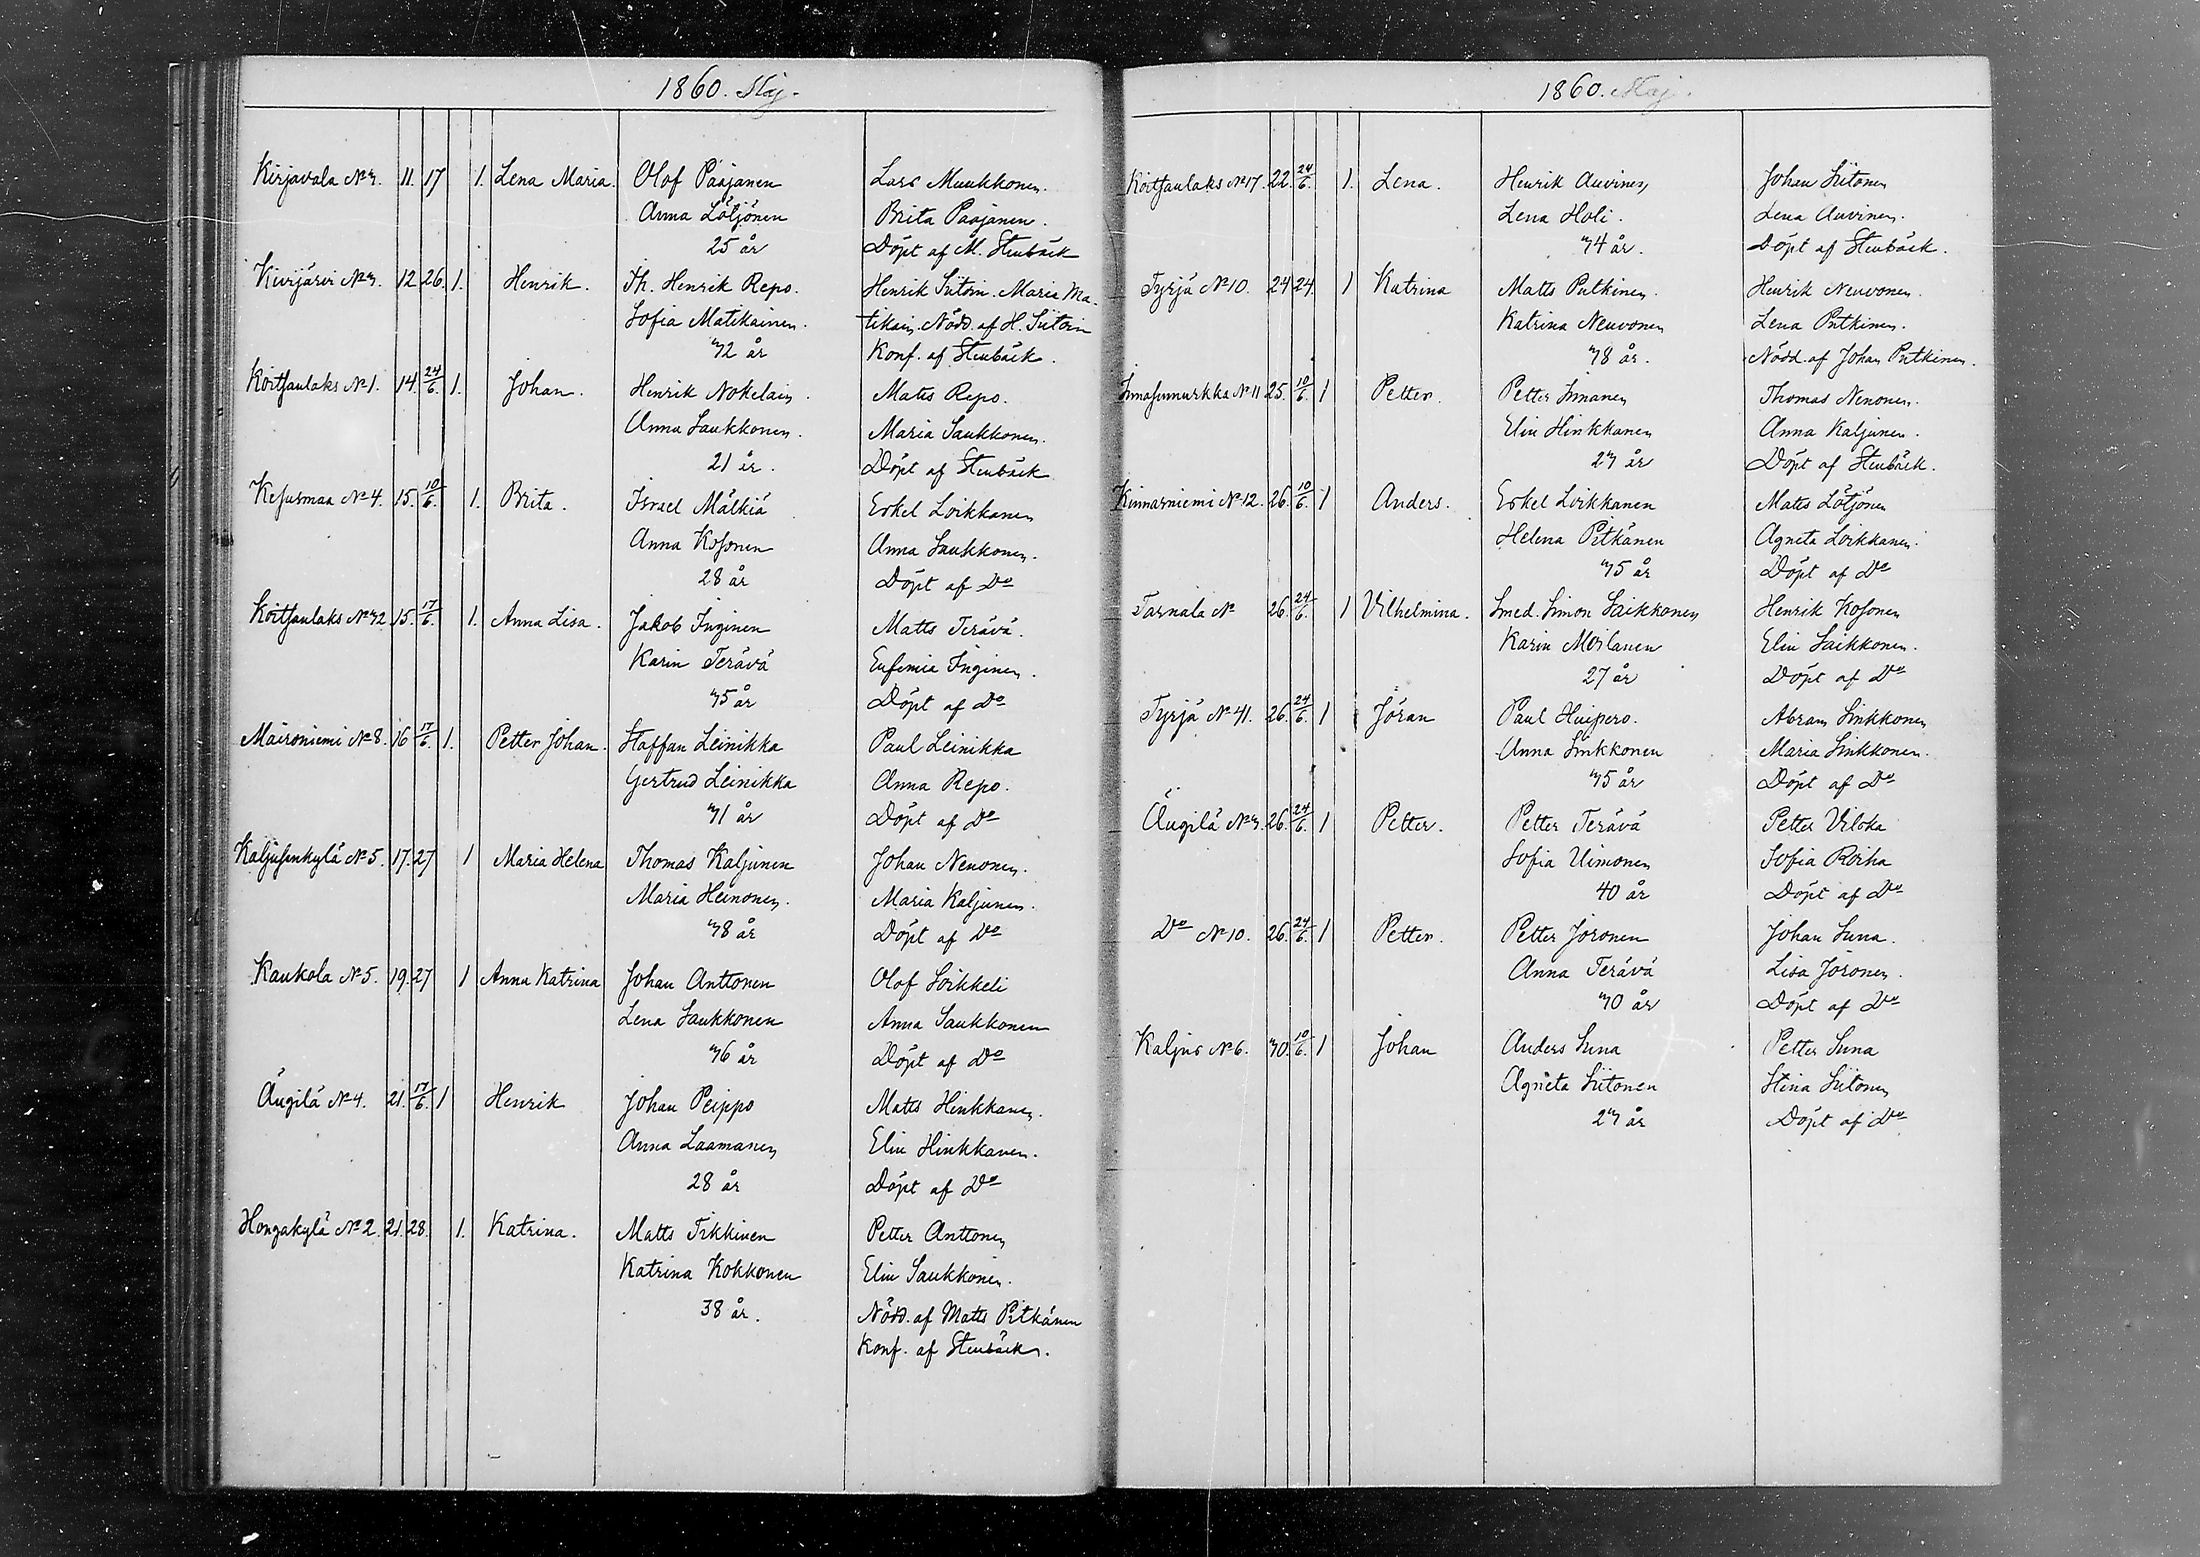 1860. Maj.
Kirjavala No 3. 11. 17 1. Lena Maria. Olof Paajanen Lars Muukkonen.
Anna Lötjönen Brita Paajanen.
25 år Döpt af M. Stenbäck
Kivijärvi No 3. 12 26. 1. Henrik. Th. Henrik Repo. Henrik Siitoin. Maria Ma-
Sofia Matikainen. tikain. Nödd. af H. Siitoin
32 år Konf. af Stenbäck.
Koitsanlaks No 1. 14. 24/6. 1. Johan. Henrik Nokelain. Matts Repo.
Anna Saukkonen. Maria Saukkonen.
21 år. Döpt af Stenbäck
Kesusmaa No 4. 15. 10/6. 1. Brita. Israel Mälkiä Eskel Loikkanen
Anna Kosonen Anna Saukkonen.
28 år Döpt af Do
Koitsanlaks No 32. 15. 17/6. 1. Anna Lisa. Jakob Inginen Matts Terävä.
Karin Terävä Eufemia Inginen.
35 år Döpt af Do
Mäironiemi No 8. 16 17/6. 1. Petter Johan. Staffan Leinikka Paul Leinikka
Gertrud Leinikka Anna Repo.
31 år Döpt af Do
Kaljusenkylä No 5. 17. 27 1 Maria Helena Thomas Kaljunen Johan Nenonen.
Maria Heinonen. Maria Kaljunen.
38 år Döpt af Do
Kaukola No 5. 19. 27 1 Anna Katrina Johan Anttonen Olof Soikkeli
Lena Saukkonen Anna Saukkonen
36 år Döpt af Do
Äugilä No 4. 21. 17/6. 1 Henrik Johan Peippo Matts Hinkkanen.
Anna Laamanen Elin Hinkkanen.
28 år Döpt af Do
Hongakylä No 2. 21. 28. 1. Katrina. Matts Tikkinen Petter Anttonen
Katrina Kokkonen Elin Saukkonen.
38 år. Nödd. af Matts Pitkänen
Konf. af Stenbäck.
1860. Maj.
Koitsanlaks No 17. 22. 24/6. 1. Lena. Henrik Auvinen Johan Siitonen
Lena Holi. Lena Auvinen.
34 år. Döpt af Stenbäck.
Tyrjä No 10. 24 24. 1 Katrina Matts Putkinen. Henrik Neuvonen.
Katrina Neuvonen Lena Putkinen.
38 år. Nödd. af Johan Putkinen.
No 11 25. 10/6. 1 Petter. Petter Immanen Thomas Nenonen.
Elin Hinkkanen Anna Kaljunen.
23 år Döpt af Stenbäck.
Kinnarniemi No 12. 26. 10/6. 1 Anders. Eskel Loikkanen Matts Lötjönen
Helena Pitkänen Agneta Loikkanen.
35 år Döpt af Do
Tarnala No 26. 24/6. 1 Vilhelmina. Smed. Simon Saikkonen Henrik Kosonen
Karin Moilanen Elin Saikkonen.
27 år Döpt af Do
Tyrjä No 41. 26. 24/6. 1 Jöran Paul Huipero. Abram Sinkkonen
Anna Sinkkonen Maria Sinkkonen.
35 år Döpt af Do
Äugilä No 3. 26. 24/6. 1 Petter. Petter Terävä Petter Vilska
Sofia Uimonen Sofia Roiha
40 år Döpt af Do
Do No 10. 26. 24/6. 1 Petter. Petter Joronen Johan Suna.
Anna Terävä Lisa Joronen.
30 år Döpt af Do
Kaljus No 6. 30. 10/6. 1 Johan Anders Suna Petter Suna
Agneta Siitonen Stina Siitonen
23 år Döpt af Do